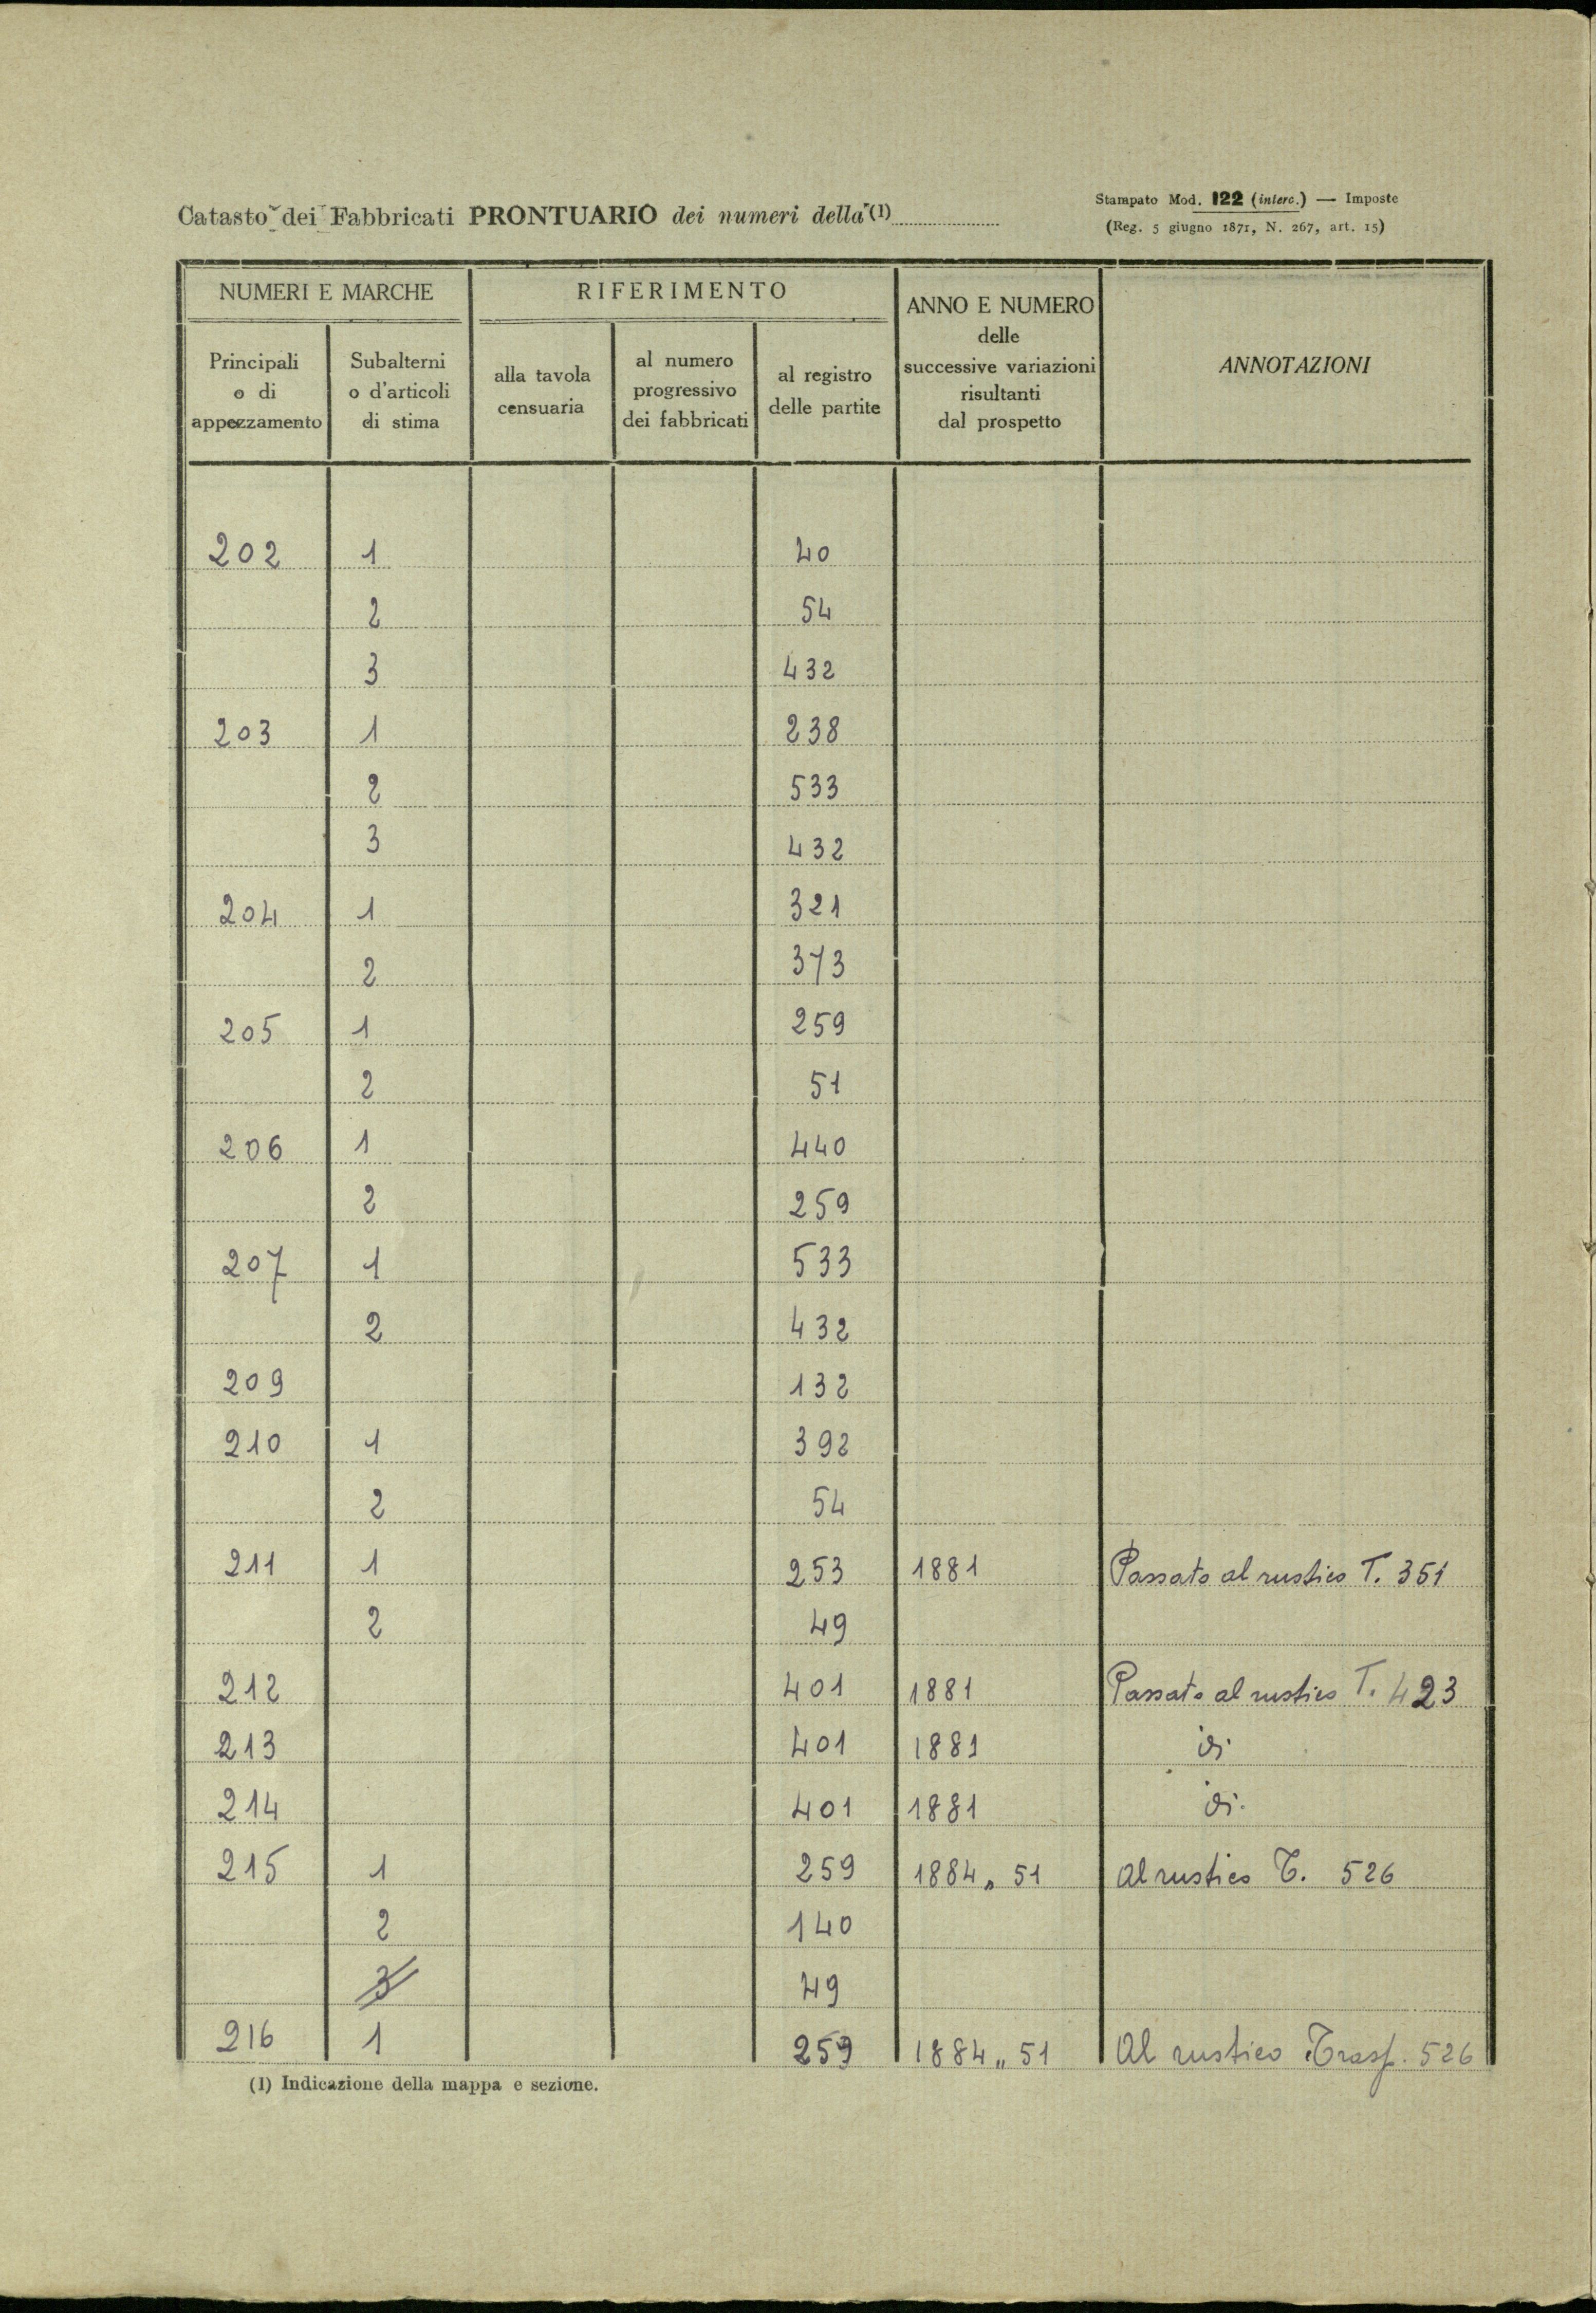 Catasto dei Fabbricati PRONTUARIO dei numeri della (1)
Stampato Mod. 122 (interc.) — Imposte
(Reg. 5 giugno 1871, N. 267, art. 15)
NUMERI E MARCHE
RIFERIMENTO
ANNO E NUMERO
delle
successive variazioni
risultanti
dal prospetto
ANNOTAZIONI
Principali
o di
appezzamento
Subalterni
o d'articoli
di stima
alla tavola
censuaria
al numero
progressivo
dei fabbricati
al registro
delle partite
202 1 40
2 54
3 432
203 1 238
2 533
3 432
204 1 321
2 373
205 1 259
2 51
206 1 440
2 259
207 1 533
2 432
209 132
210 1 392
2 54
211 1 253 1881 Passato al rustico T. 351
2 49
212 401 1881 Passato al rustico T. 423
213 401 1881 di
214 401 1881 di.
215 1 259 1884 „ 51 al rustico T. 526
2 140
3 49
216 1 259 1884 „ 51 Al rustico Trasf. 526
(1) Indicazione della mappa e sezione.